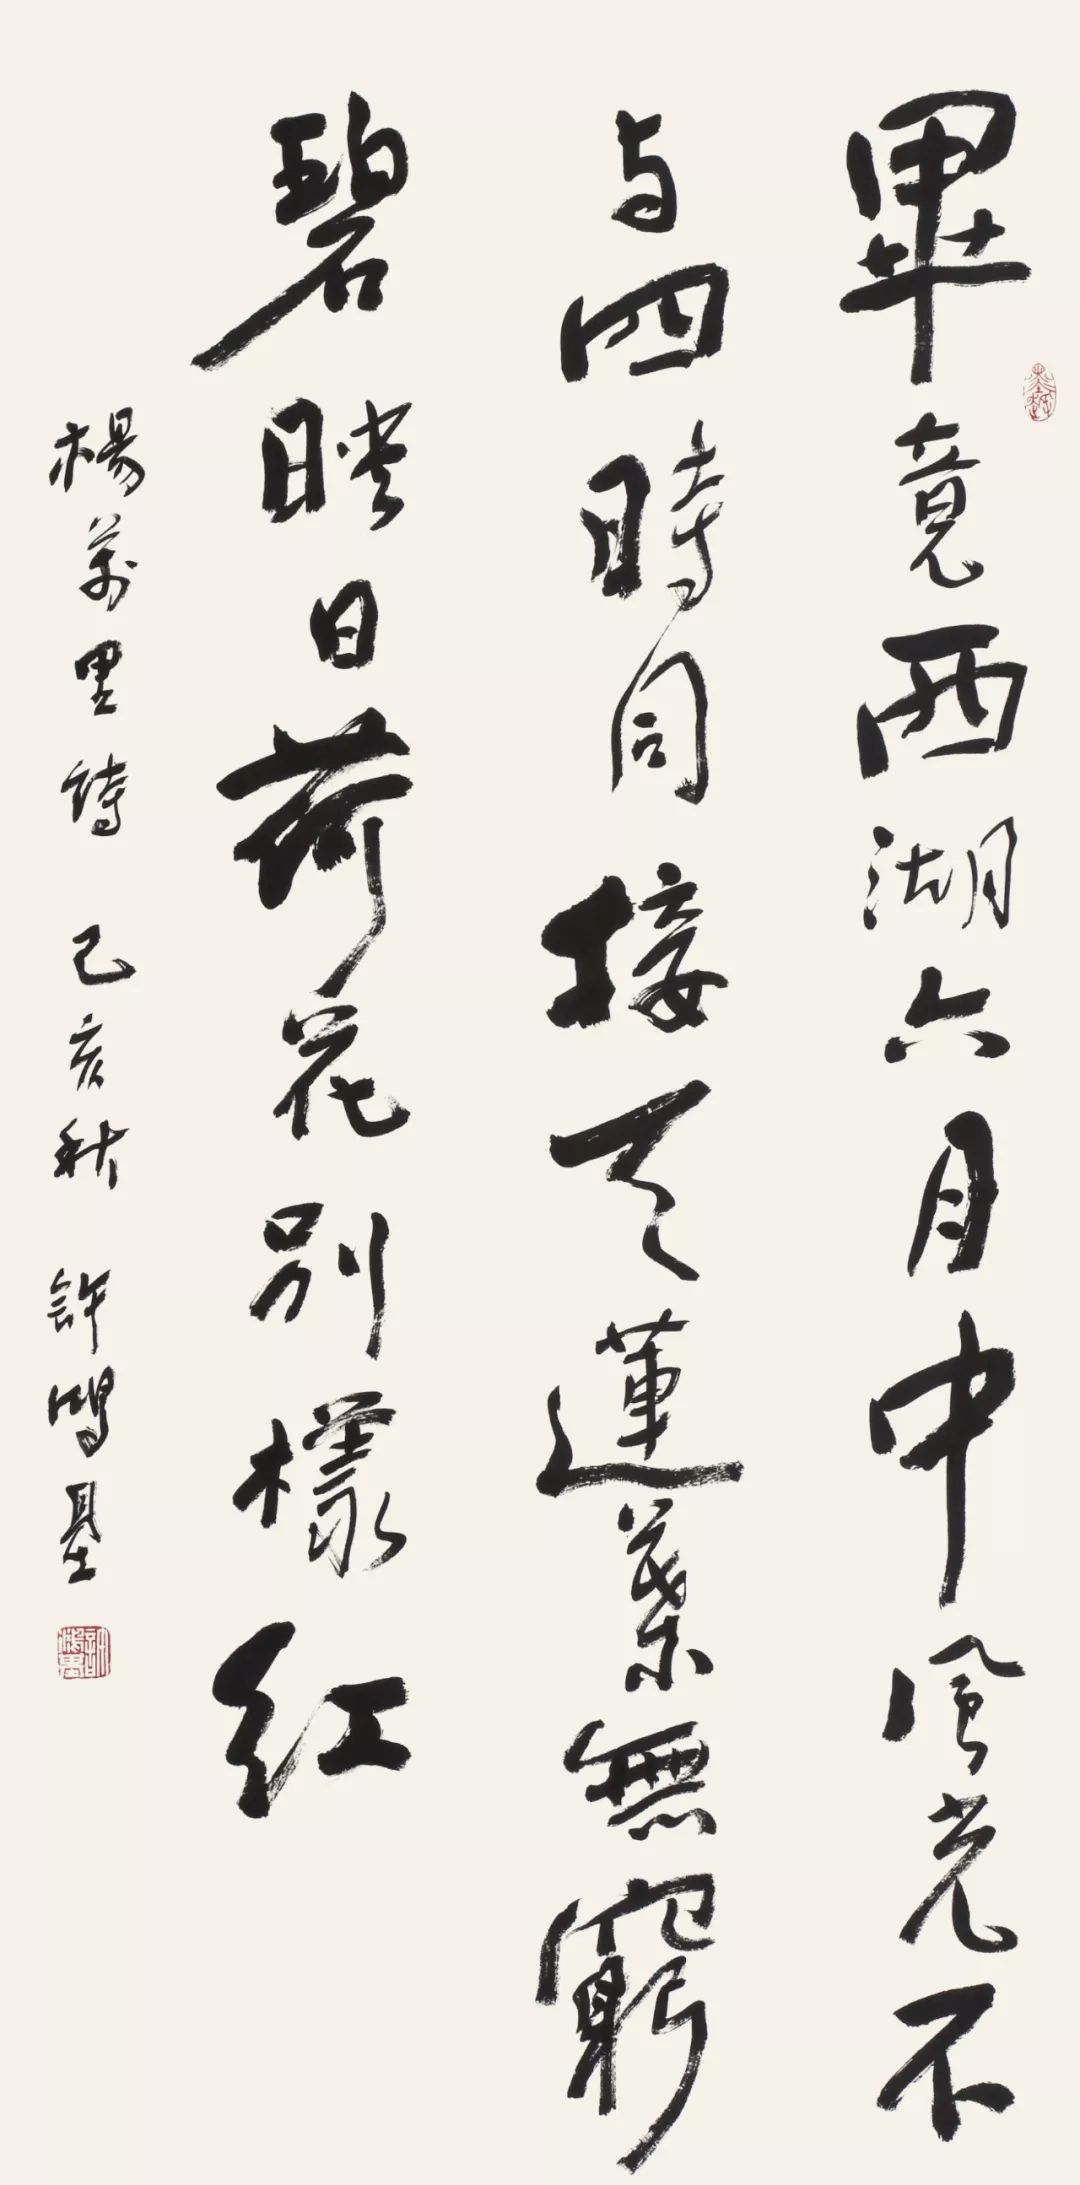 畢竟西湖六月中風光不
与四時同接天蓮葉無窮
碧映日荷花別樣红
楊萬里詩 己亥秋 許鴻基